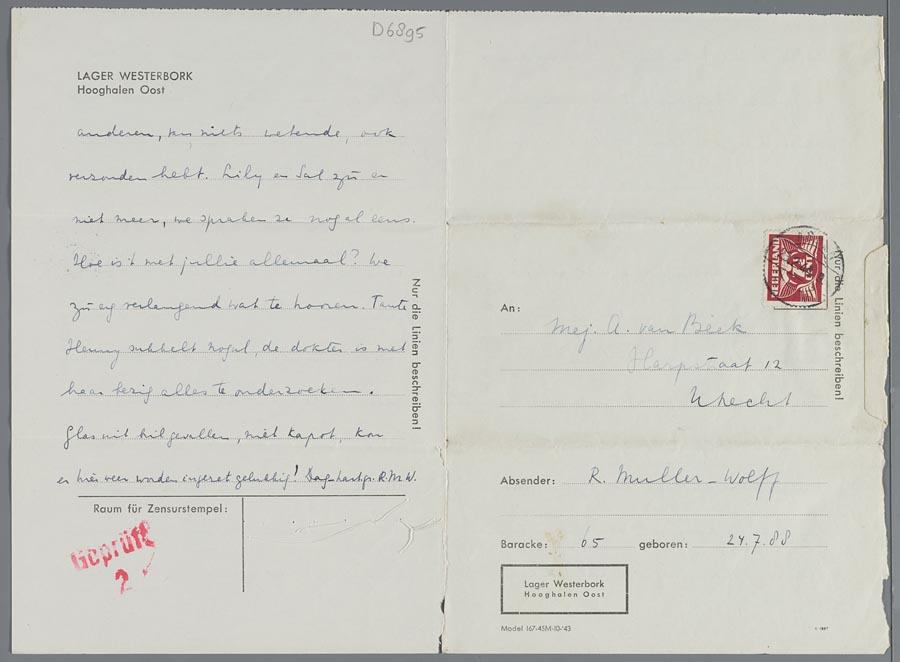 D6895
LAGER WESTERBORK
Hooghalen Oost
anderen, niets wetende, ook
verzonden hebt. Lily en Sal zijn er
niet meer, we spraken ze nogal eens.
Hoe is 't met jullie allemaal? We
zijn erg verlangend wat te hooren. Tante
Henny sukkelt nogal, de dokter is met
haar bezig alles te onderzoeken.
Glas uit bril gevallen, niet kapot, kon
er hier weer worden ingezet gelukkig! Dag hartgr. R.M.W.
Nur die Linien beschreiben!
Raum für Zensurstempel:
Geprüft
2
NEDERLAND
7½
CENT
An:
Mej. A. van Beek
Harpstraat 12
Utrecht
Nur die Linien beschreiben!
Absender: R. Muller-Wolff
Baracke: 65 geboren: 24.7.88
Lager Westerbork
Hooghalen Oost
Model 167-45M-10-'43